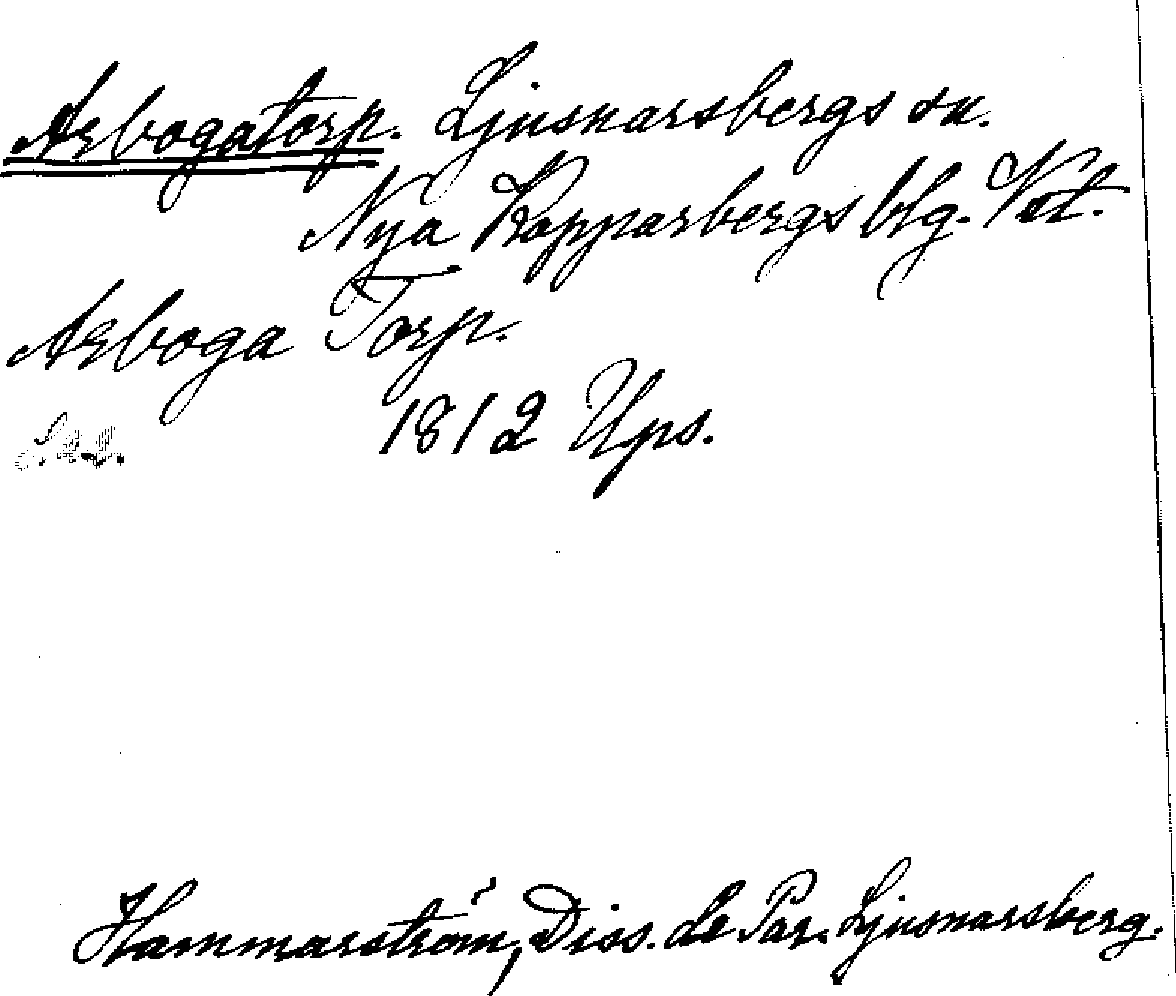 Arbogatorp. Ljusnarsbergs sn.
Nya Kopparbergs blg. Vst.
Arboga Torp.
1812 Ups.
Hammarström, Diss. de Par. Ljusnarsberg.